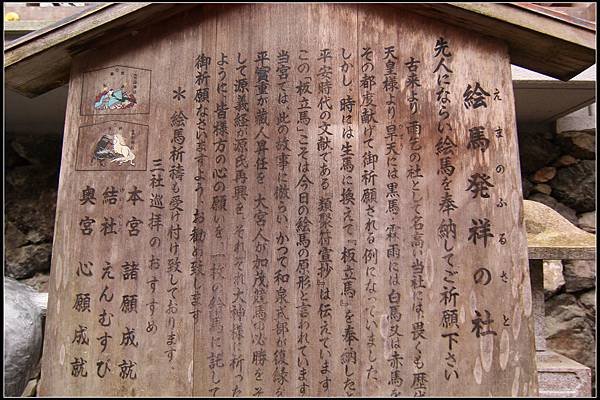 えまのふるさと
絵馬発祥の社
先人にならい絵馬を奉納してご祈願下さい
古来より雨乞の社として名高い当社には、畏くも歴代
天皇様より旱天には黒馬・霖雨には白馬又は赤馬を
その都度献げて御祈願される例になっていました。
しかし、時には生馬に換えて『板立馬』を奉納したと
平安時代の文献である『類聚符宣抄』は伝えています
この『板立馬』こそは今日の絵馬の原形と言われています
当宮では、此の故事に倣い、かつて和泉式部が復縁を
平實重が蔵人昇任を 大宮人が加茂競馬の必勝をそ
して源義経が源氏再興を、それぞれ大神様に祈った
ように 皆様方の心の願いを 一枚の絵馬に託して
御祈願なさいますよう、お勧め致します
＊ 絵馬祈祷も受け付け致しております。
三社巡拝のおすすめ
本宮 諸願成就
結社 えんむすび
奥宮 心願成就